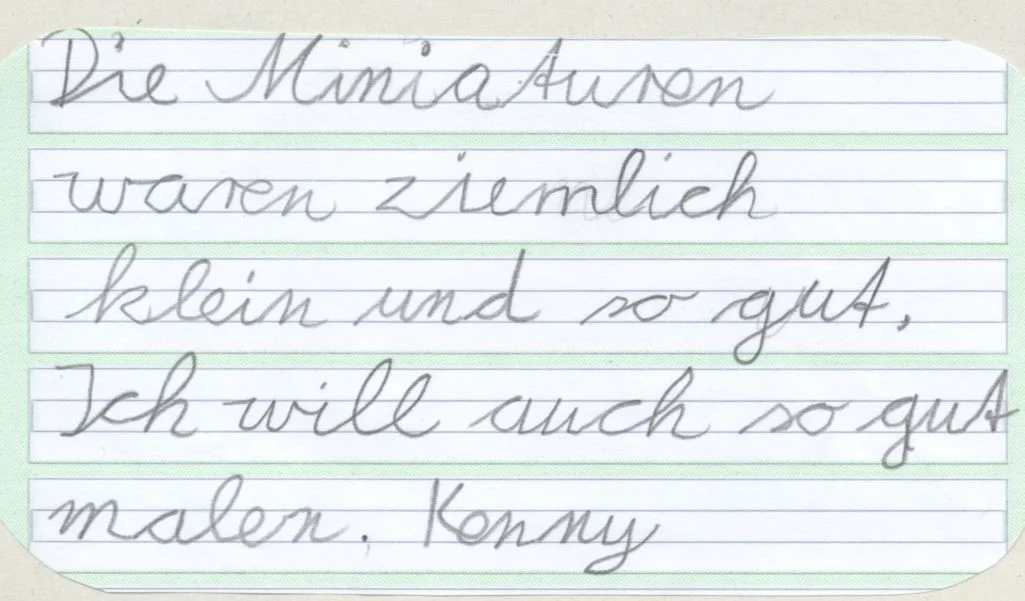 Die Miniaturen
waren ziemlich
klein und so gut.
Ich will auch so gut
malen. Kenny